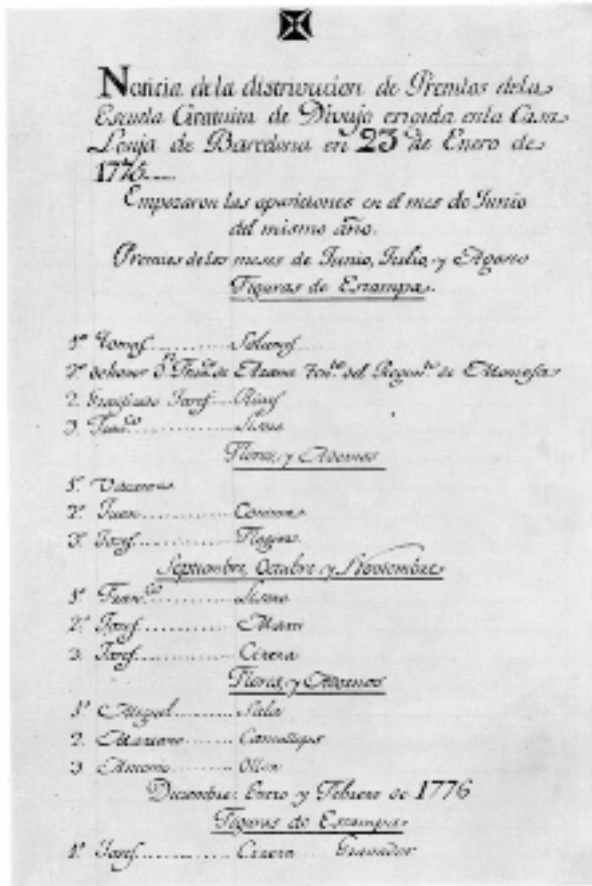 Noticia de la distrivucion de Premios de la
Escuela Gratuita de Divujo erigida en la Casa
Lonja de Barcelona en 23 de Enero de
1775
Empezaron las oposiciones en el mes de Junio
del mismo año.
Premios de los meses de Junio, Julio, y Agosto
Figuras de Estampa.
1º Tomas
2º de honor Dn Franco de de del Regimto de
2. Graficado Josef
3. Franco
Flores, y Adornos
1º
2º Juan
3º Josef
Septiembre, Octubre y Noviembre
1º Franco
2º Josef
3. Josef Cirera
Flores, y Adornos
1º Miguel Sala
2. Mariano
3 Antonio
Diciembre, Enero y Febrero de 1776
Figuras de Estampa
1º Josef Cirera Gravador